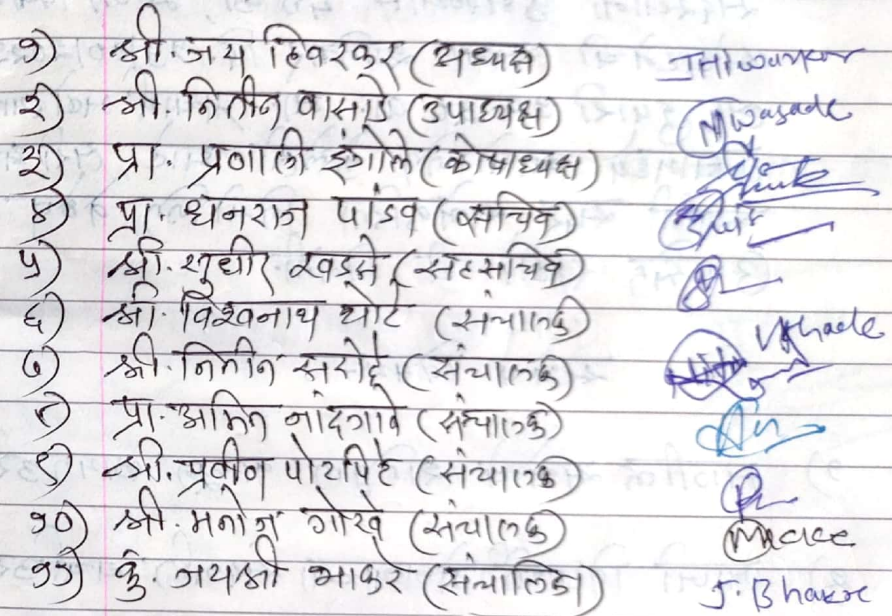 १) श्री. जय हिवरकर (अध्यक्ष) JHiwarkar
२) श्री. नितीन वासाडे (उपाध्यक्ष) NWasade
३) प्रा. प्रणाली इंगोले (कोषाध्यक्ष)
४) प्रा. धनराज पांडव (सचिव)
५) श्री. सुधीर खडसे (सहसचिव)
६) श्री. विश्वनाथ थोटे (संचालक)
७) श्री. नितीन सरोदे (संचालक)
८) प्रा. अमित नांदगावे (संचालक)
९) श्री. प्रवीन पोटपिटे (संचालक)
१०) श्री. मनोज गोरखे (संचालक)
११) कु. जयश्री भाकरे (संचालिका) J. Bhakre